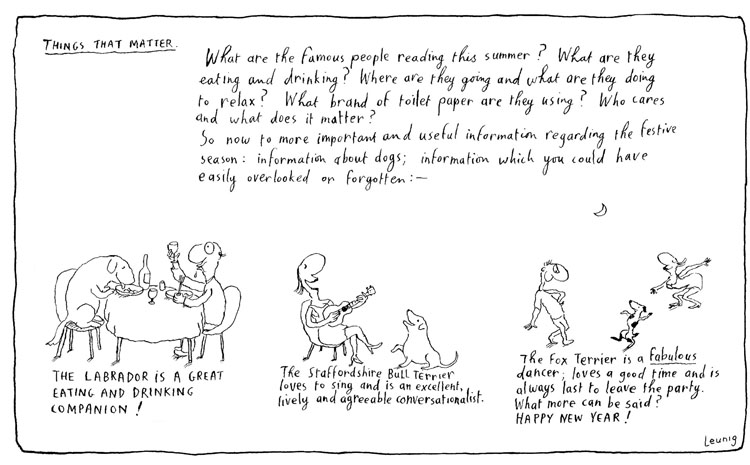 THINGS THAT MATTER.
What are the famous people reading this summer? What are they
eating and drinking? Where are they going and what are they doing
to relax? What brand of toilet paper are they using? Who cares
and what does it matter?
So now to more important and useful information regarding the festive
season: information about dogs; information which you could have
easily overlooked or forgotten:—
THE LABRADOR IS A GREAT
EATING AND DRINKING
COMPANION!
The Staffordshire Bull Terrier
loves to sing and is an excellent,
lively and agreeable conversationalist.
The Fox Terrier is a fabulous
dancer; loves a good time and is
always last to leave the party.
What more can be said?
HAPPY NEW YEAR!
Leunig